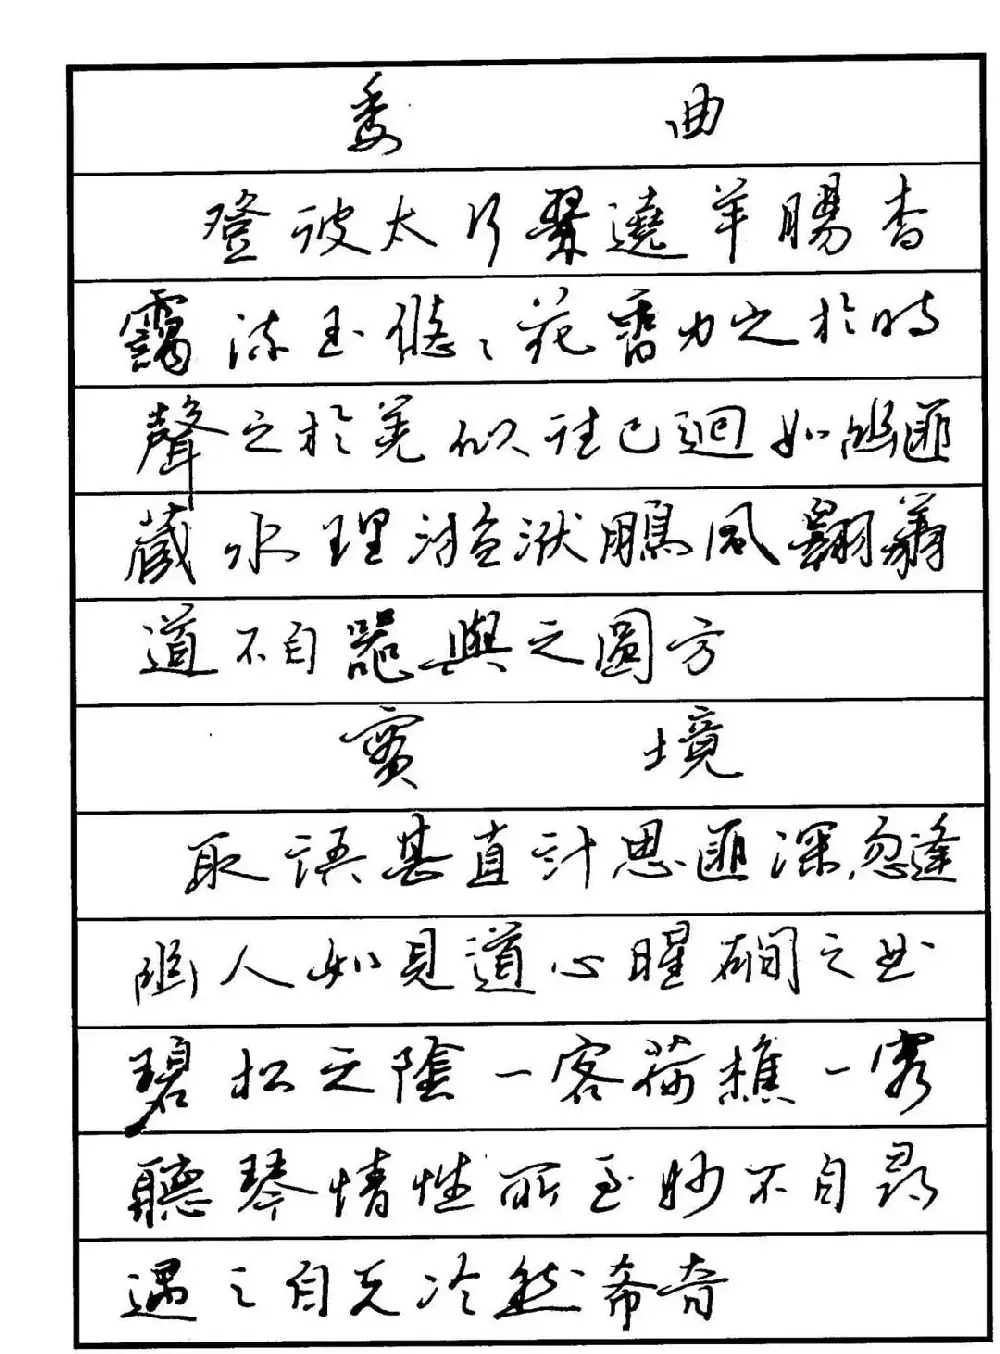 委曲
登彼太行翠遶羊腸杳
靄流玉悠々花香力之於時
聲之於羌似往已迴如幽匪
藏水理漩洑鵬風翱翔
道不自器與之圓方
實境
取語甚直計思匪深忽逢
幽人如見道心晴澗之曲
碧松之陰一客荷樵一客
聽琴情性所至妙不自尋
遇之自天泠然希音